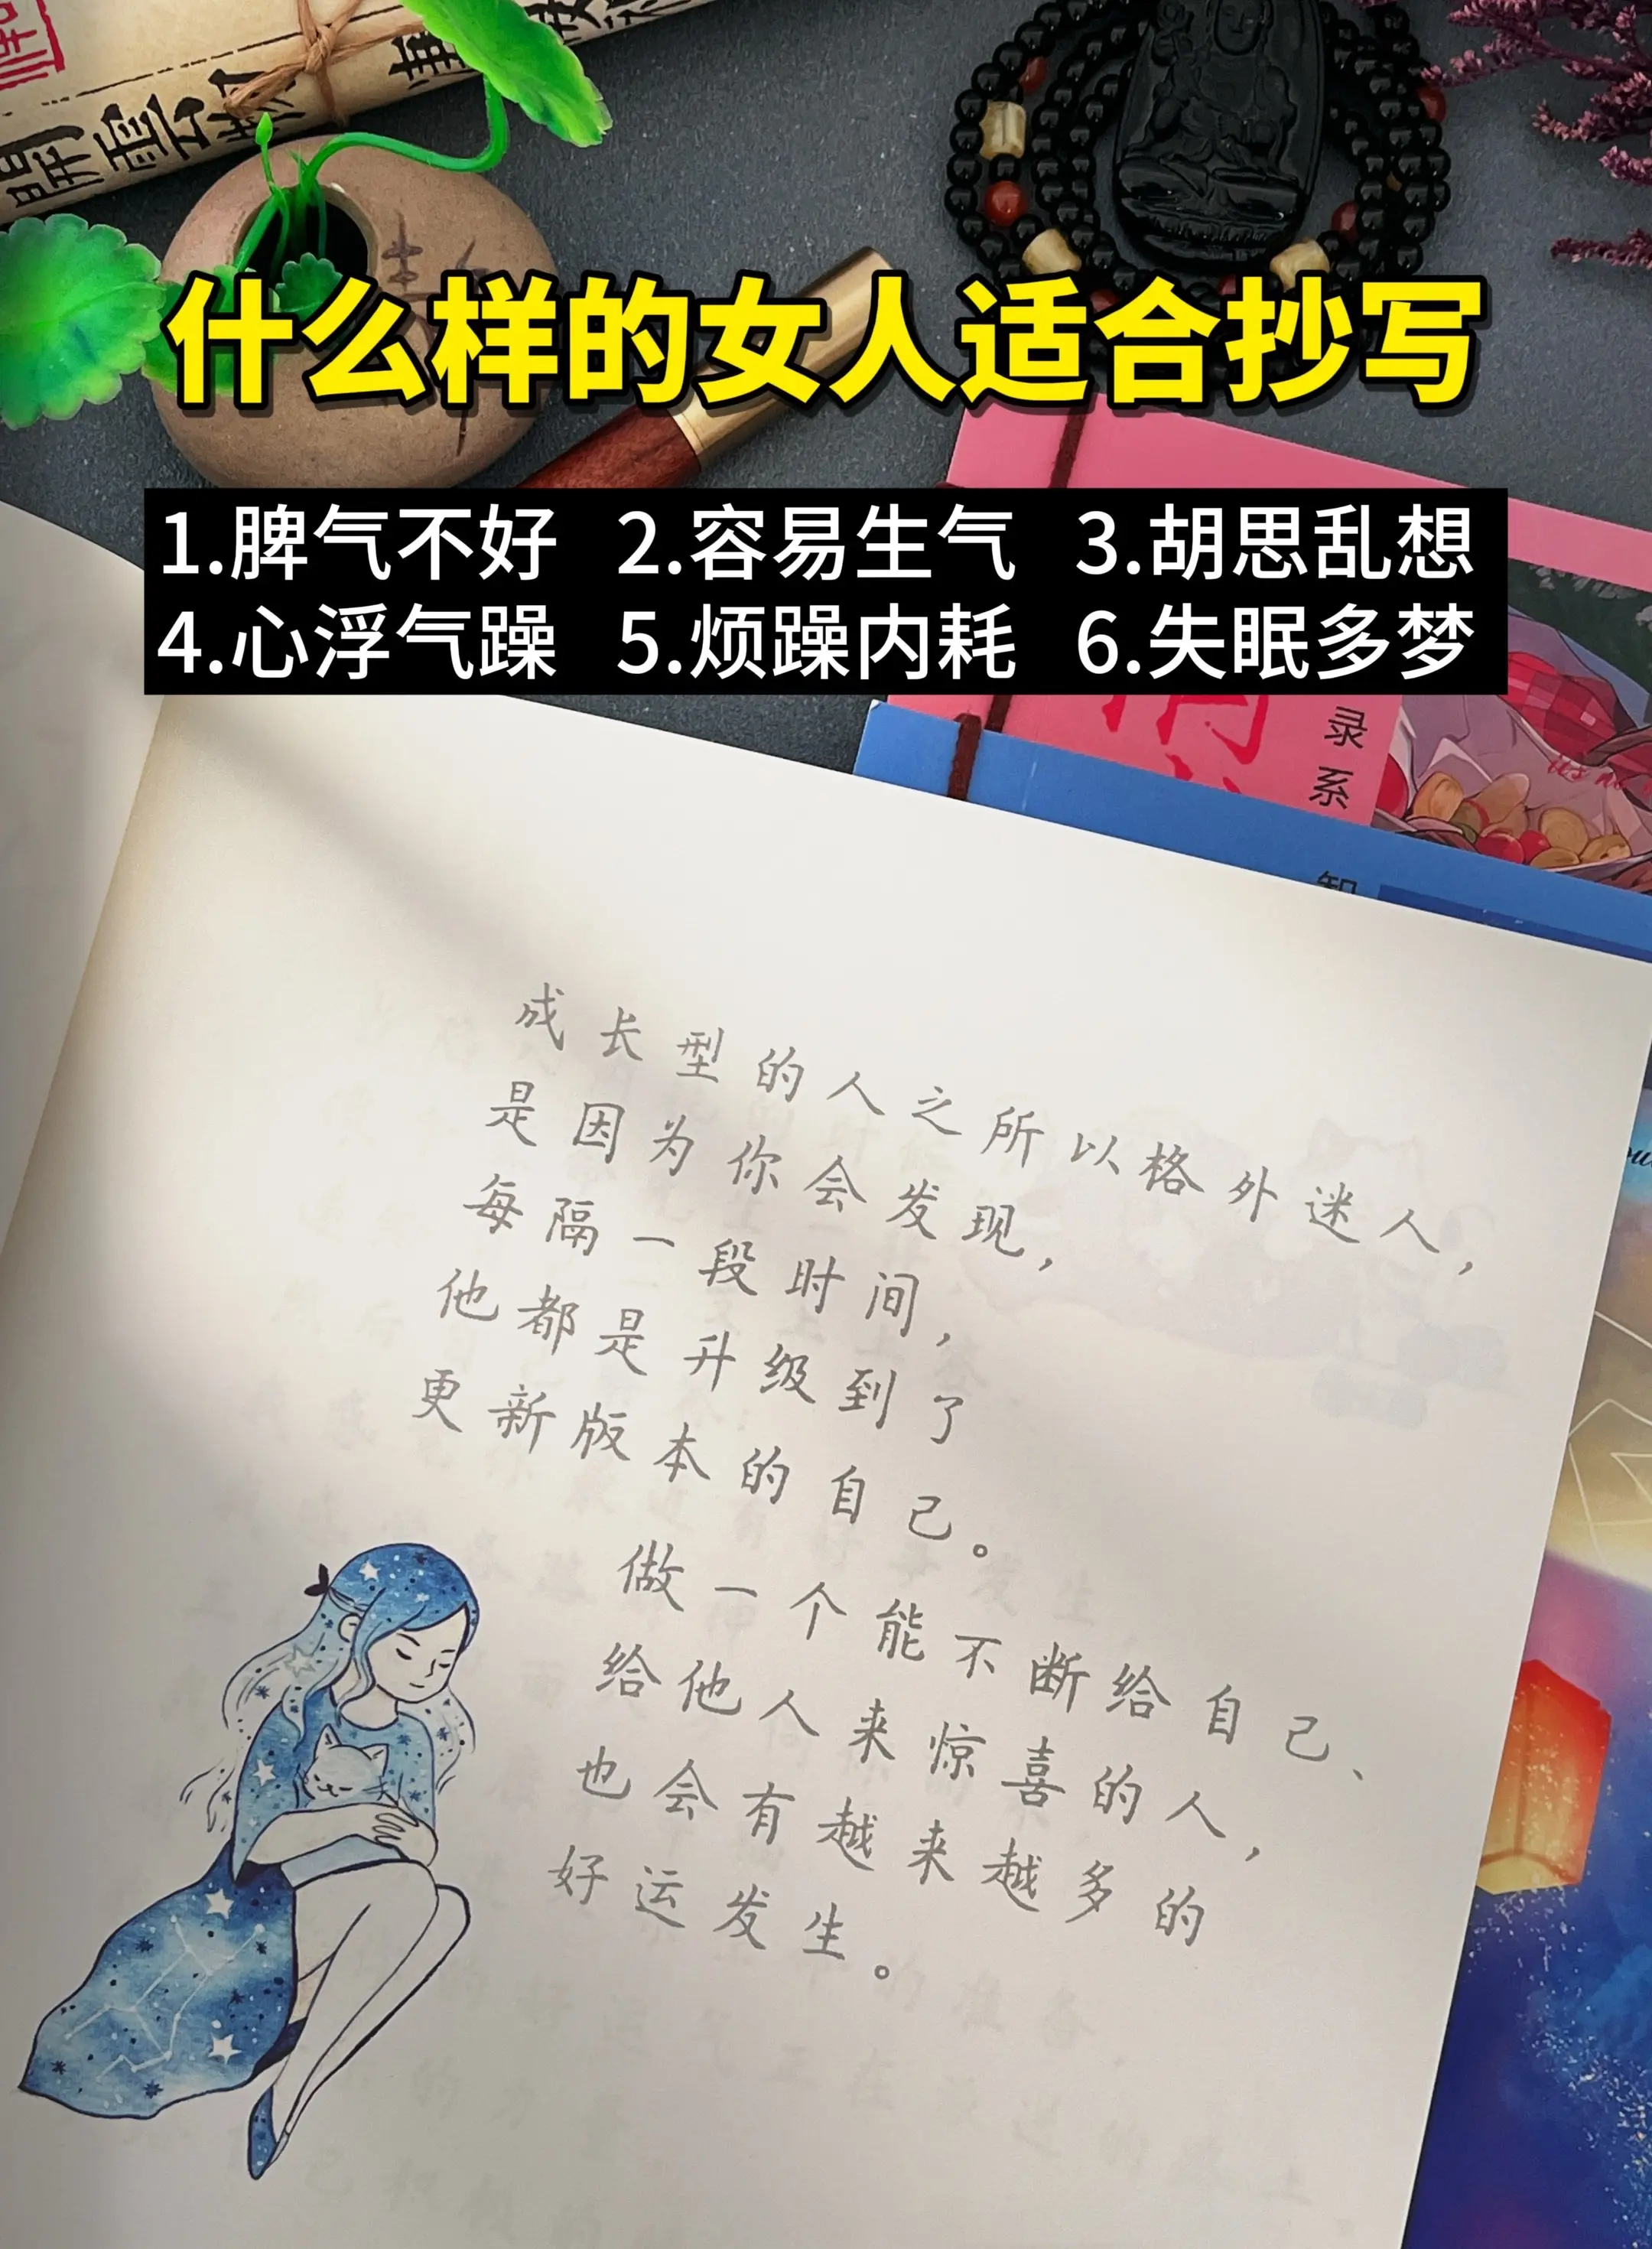 開雲
什么样的女人适合抄写
1.脾气不好 2.容易生气 3.胡思乱想
4.心浮气躁 5.烦躁内耗 6.失眠多梦
录系
成长型的人之所以格外迷人，
是因为你会发现，
每隔一段时间，
他都是升级到了
更新版本的自己。
做一个能不断给自己、
给他人来惊喜的人，
也会有越来越多的
好运发生。